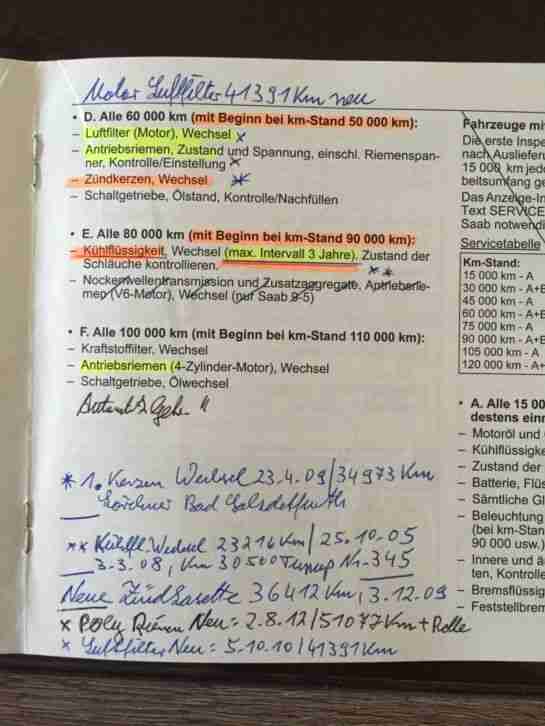 Motor Luftfilter 41391 Km neu
• D. Alle 60 000 km (mit Beginn bei km-Stand 50 000 km):
– Luftfilter (Motor), Wechsel x
– Antriebsriemen, Zustand und Spannung, einschl. Riemenspan-
ner, Kontrolle/Einstellung x
– Zündkerzen, Wechsel *
– Schaltgetriebe, Ölstand, Kontrolle/Nachfüllen
• E. Alle 80 000 km (mit Beginn bei km-Stand 90 000 km):
– Kühlflüssigkeit, Wechsel (max. Intervall 3 Jahre), Zustand der
Schläuche kontrollieren. **
– Nockenwellentransmission und Zusatzaggregate, Antriebsrie-
men (V6-Motor), Wechsel (nur Saab 9-5)
• F. Alle 100 000 km (mit Beginn bei km-Stand 110 000 km):
– Kraftstoffilter, Wechsel
– Antriebsriemen (4-Zylinder-Motor), Wechsel
– Schaltgetriebe, Ölwechsel
* 1. Kerzen Wechsel 23.4.09/34973 Km
Bad Salsdetfurth
** Kühlfl. Wechsel 23216 Km/25.10.05
3.3.08, Km 30500 Tunup Nr. 345
Neue Zündkasette 36412 Km, 3.12.09
x Poly Riemen Neu = 2.8.12/51077 Km + Rolle
x Luftfilter Neu = 5.10.10/41391 Km
Fahrzeuge mi
Die erste Inspe
nach Ausliefer
15 000 km jed
beitsumfang ge
Das Anzeige-In
Text SERVICE
Saab notwendi
Servicetabelle
Km-Stand:
15 000 km - A
30 000 km - A+E
45 000 km - A
60 000 km - A+E
75 000 km - A
90 000 km - A+E
105 000 km - A
120 000 km - A+
• A. Alle 15 00
destens einn
– Motoröl und
– Kühlflüssigke
– Zustand der
– Batterie, Flüs
– Sämtliche Gl
– Beleuchtung
(bei km-Stan
90 000 usw.)
– Innere und ä
ten, Kontrolle
– Bremsflüssig
– Feststellbrem